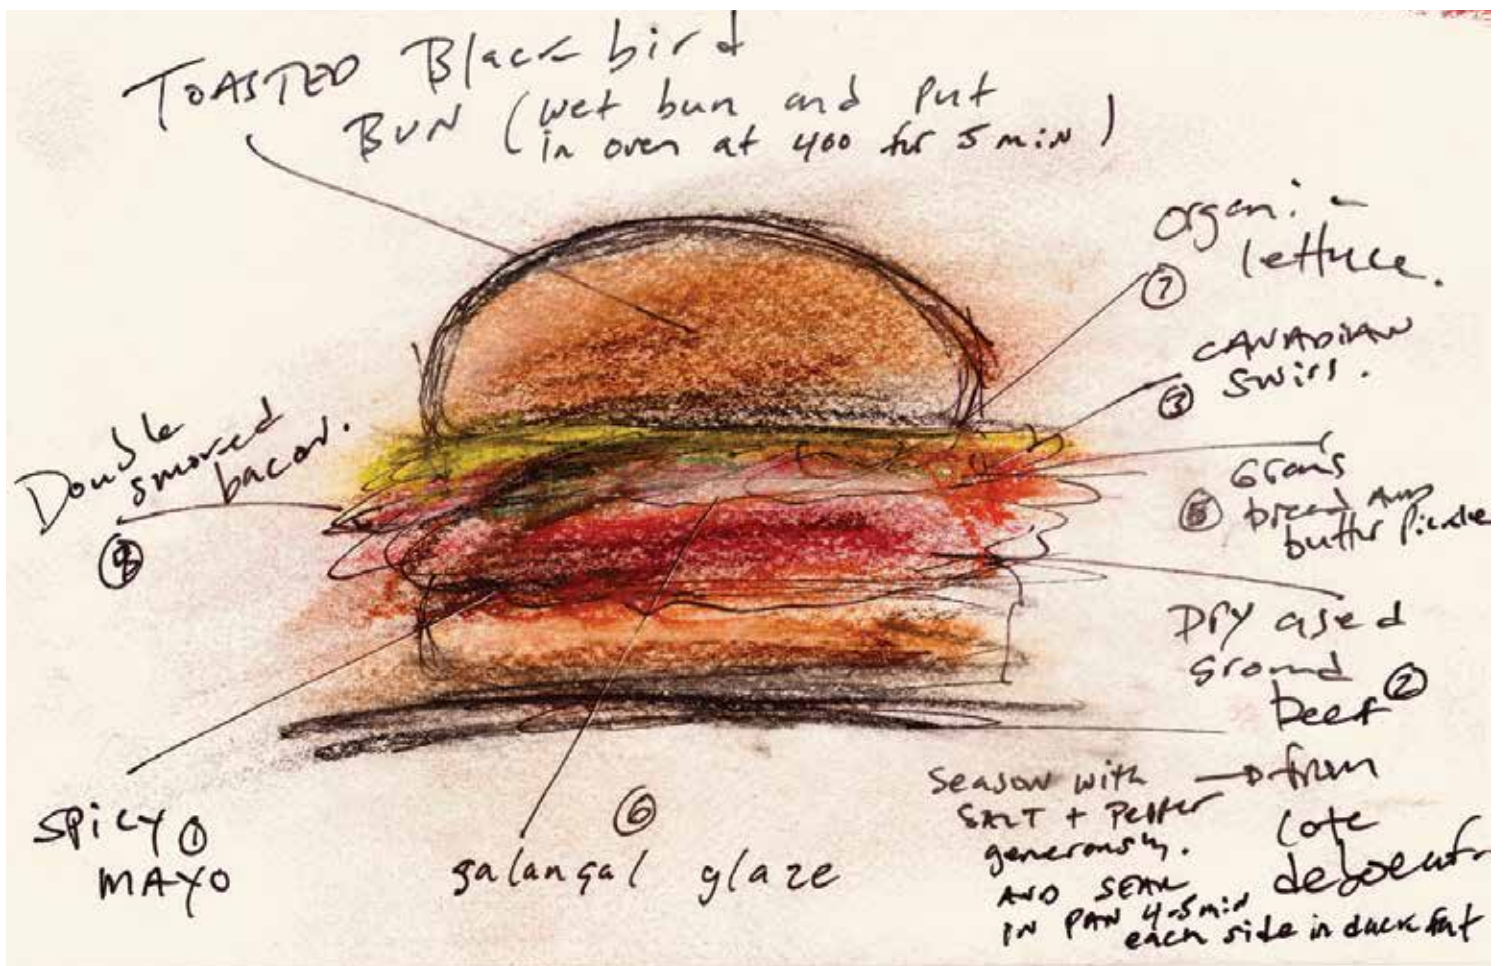 TOASTED Blackbird
BUN (wet bun and put
in oven at 400 for 5 min)
organic
lettuce.
⑦
CANADIAN
③ swiss.
Double
smoked
bacon.
④
Gran's
⑤ bread AND
butter pickle
DRY aged
ground
beef ②
from
cote
deboeuf
season with
SALT + Pepper
generously.
AND SEAR
IN PAN 4-5 min
each side in duck fat
spicy ①
MAYO
⑥
galangal glaze